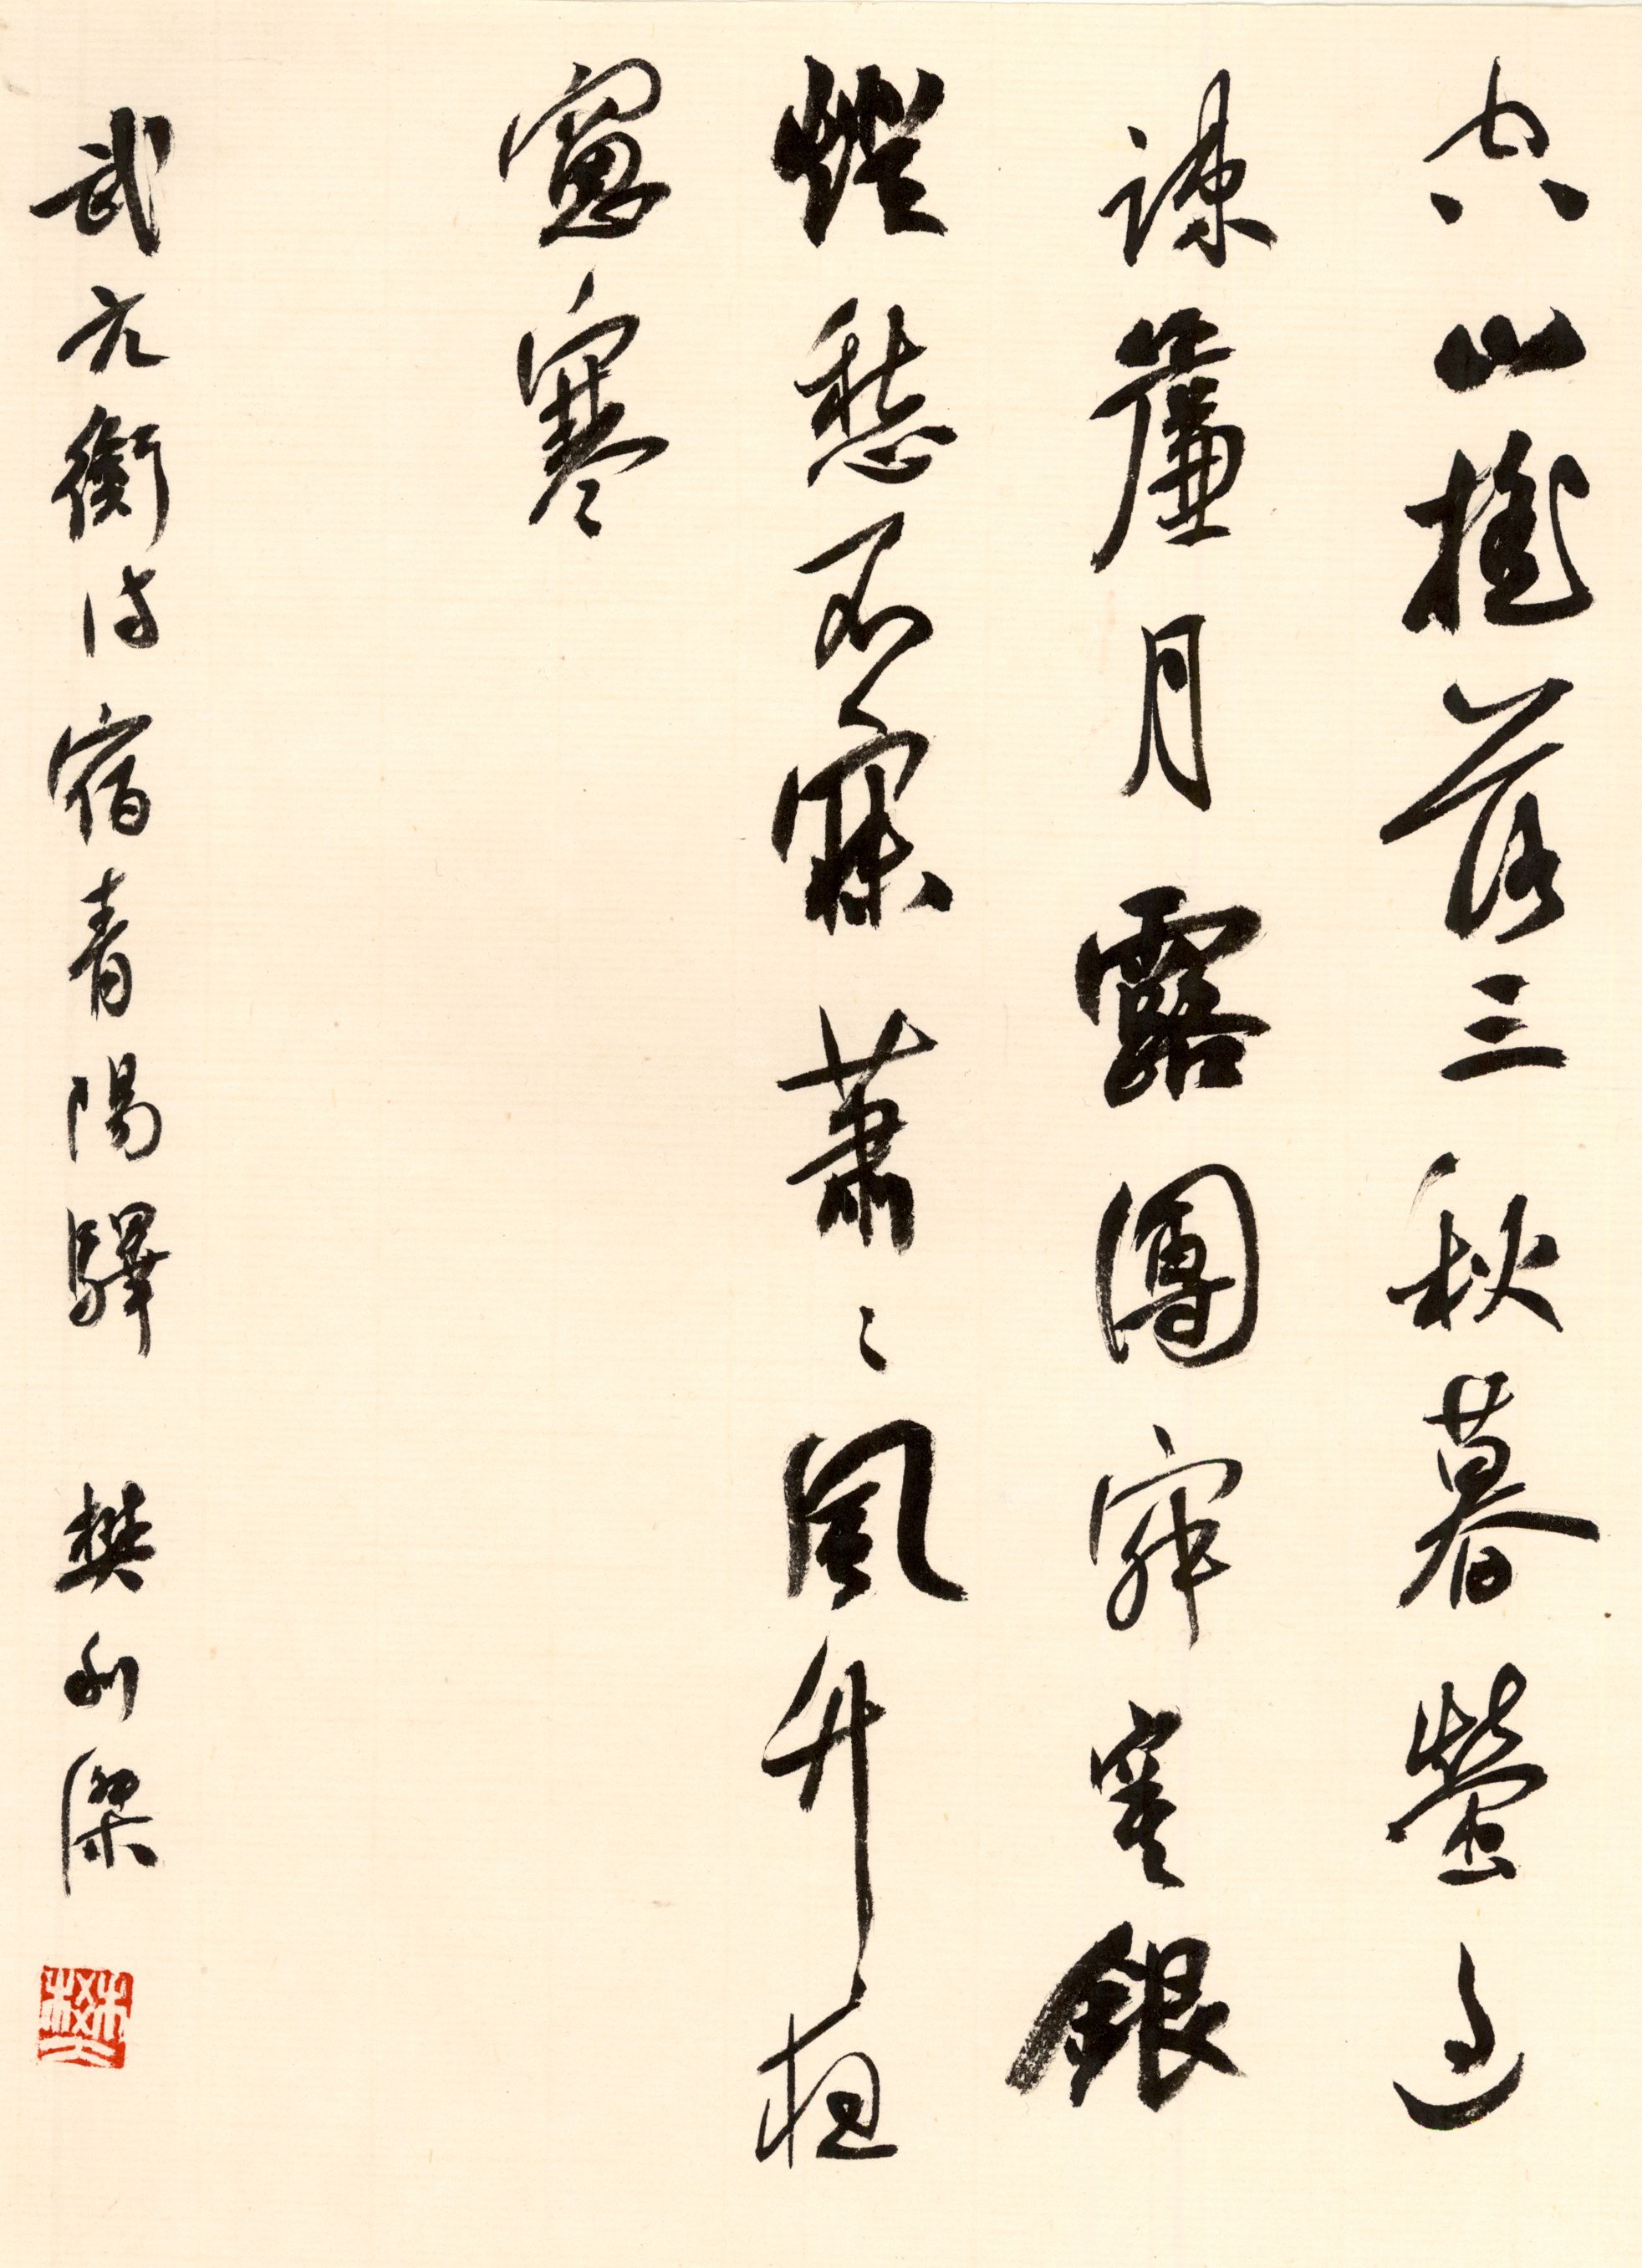 空山搖落三秋暮螢過
疎簾月露團寂寞銀
燈愁不寐蕭〻風竹
窻寒
武元衡诗宿青陽驛 樊利傑
樊